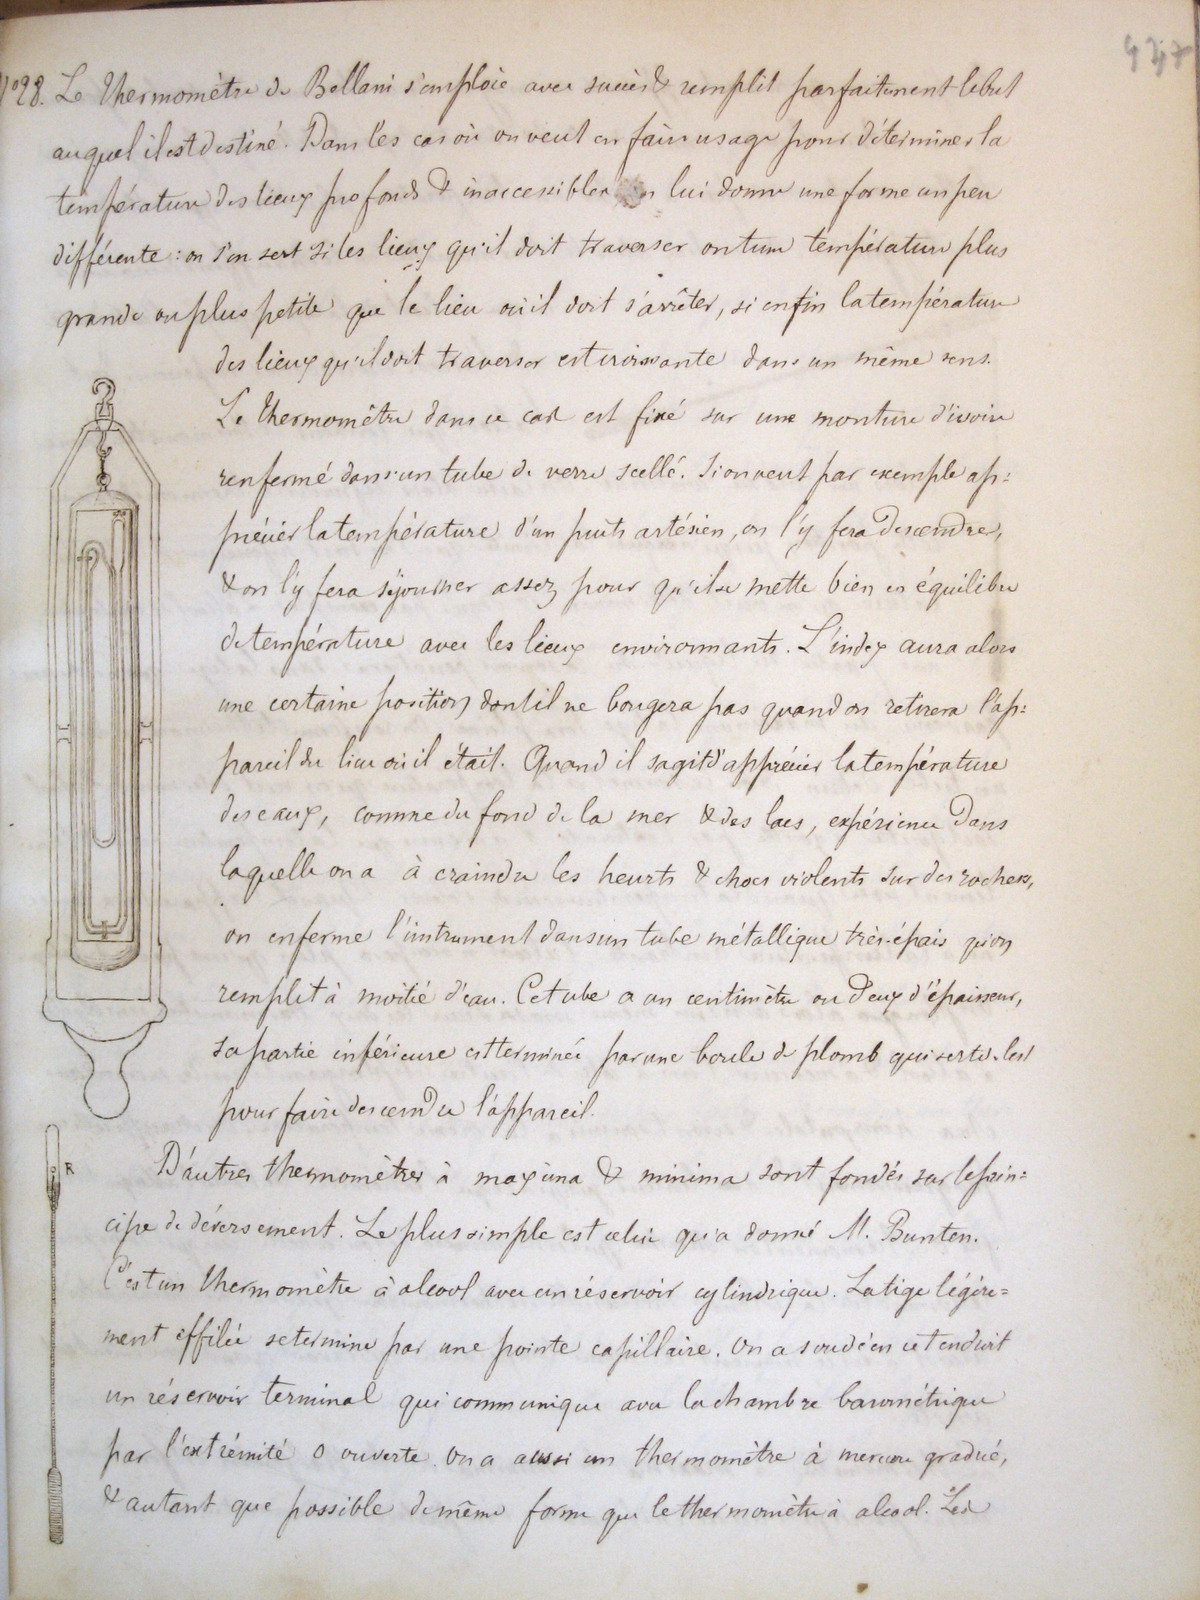 447
N°28. Le thermomètre de Bellani s'emploie avec succès & remplit parfaitement le but
auquel il est destiné. Dans les cas où on veut en faire usage pour déterminer la
température des lieux profonds & inaccessibles on lui donne une forme un peu
différente : on s'en sert si les lieux qu'il doit traverser ont une température plus
grande ou plus petite que le lieu où il doit s'arrêter, si enfin la température
des lieux qu'il doit traverser est croissante dans un même sens.
Le thermomètre dans ce cas est fixé sur une monture d'ivoire
renfermé dans un tube de verre scellé. Si on veut par exemple ap=
précier la température d'un puits artésien, on l'y fera descendre,
& on l'y fera séjourner assez pour qu'il se mette bien en équilibre
de température avec les lieux environnants. L'index aura alors
une certaine position dont il ne bougera pas quand on retirera l'ap=
pareil du lieu où il était. Quand il sagit d'apprécier la température
des eaux, comme du fond de la mer & des lacs, expérience dans
laquelle on a à craindre les heurts & chocs violents sur des rochers,
on enferme l'instrument dans un tube métallique très-épais qu'on
remplit à moitié d'eau. Ce tube a un centimètre ou deux d'épaisseur,
sa partie inférieure est terminée par une boule de plomb qui sert de lest
pour faire descendre l'appareil.
D'autres thermomètres à maxima & minima sont fondés sur le prin=
cipe de déversement. Le plus simple est celui qu'a donné M. Bunten.
C'est un thermomètre à alcool avec un réservoir cylindrique. La tige légère=
ment effilée se termine par une pointe capillaire. On a soudé en cet endroit
un réservoir terminal qui communique avec la chambre barométrique
par l'extrémité o ouverte. On a aussi un thermomètre à mercure gradué,
& autant que possible de même forme que le thermomètre à alcool. Les
R